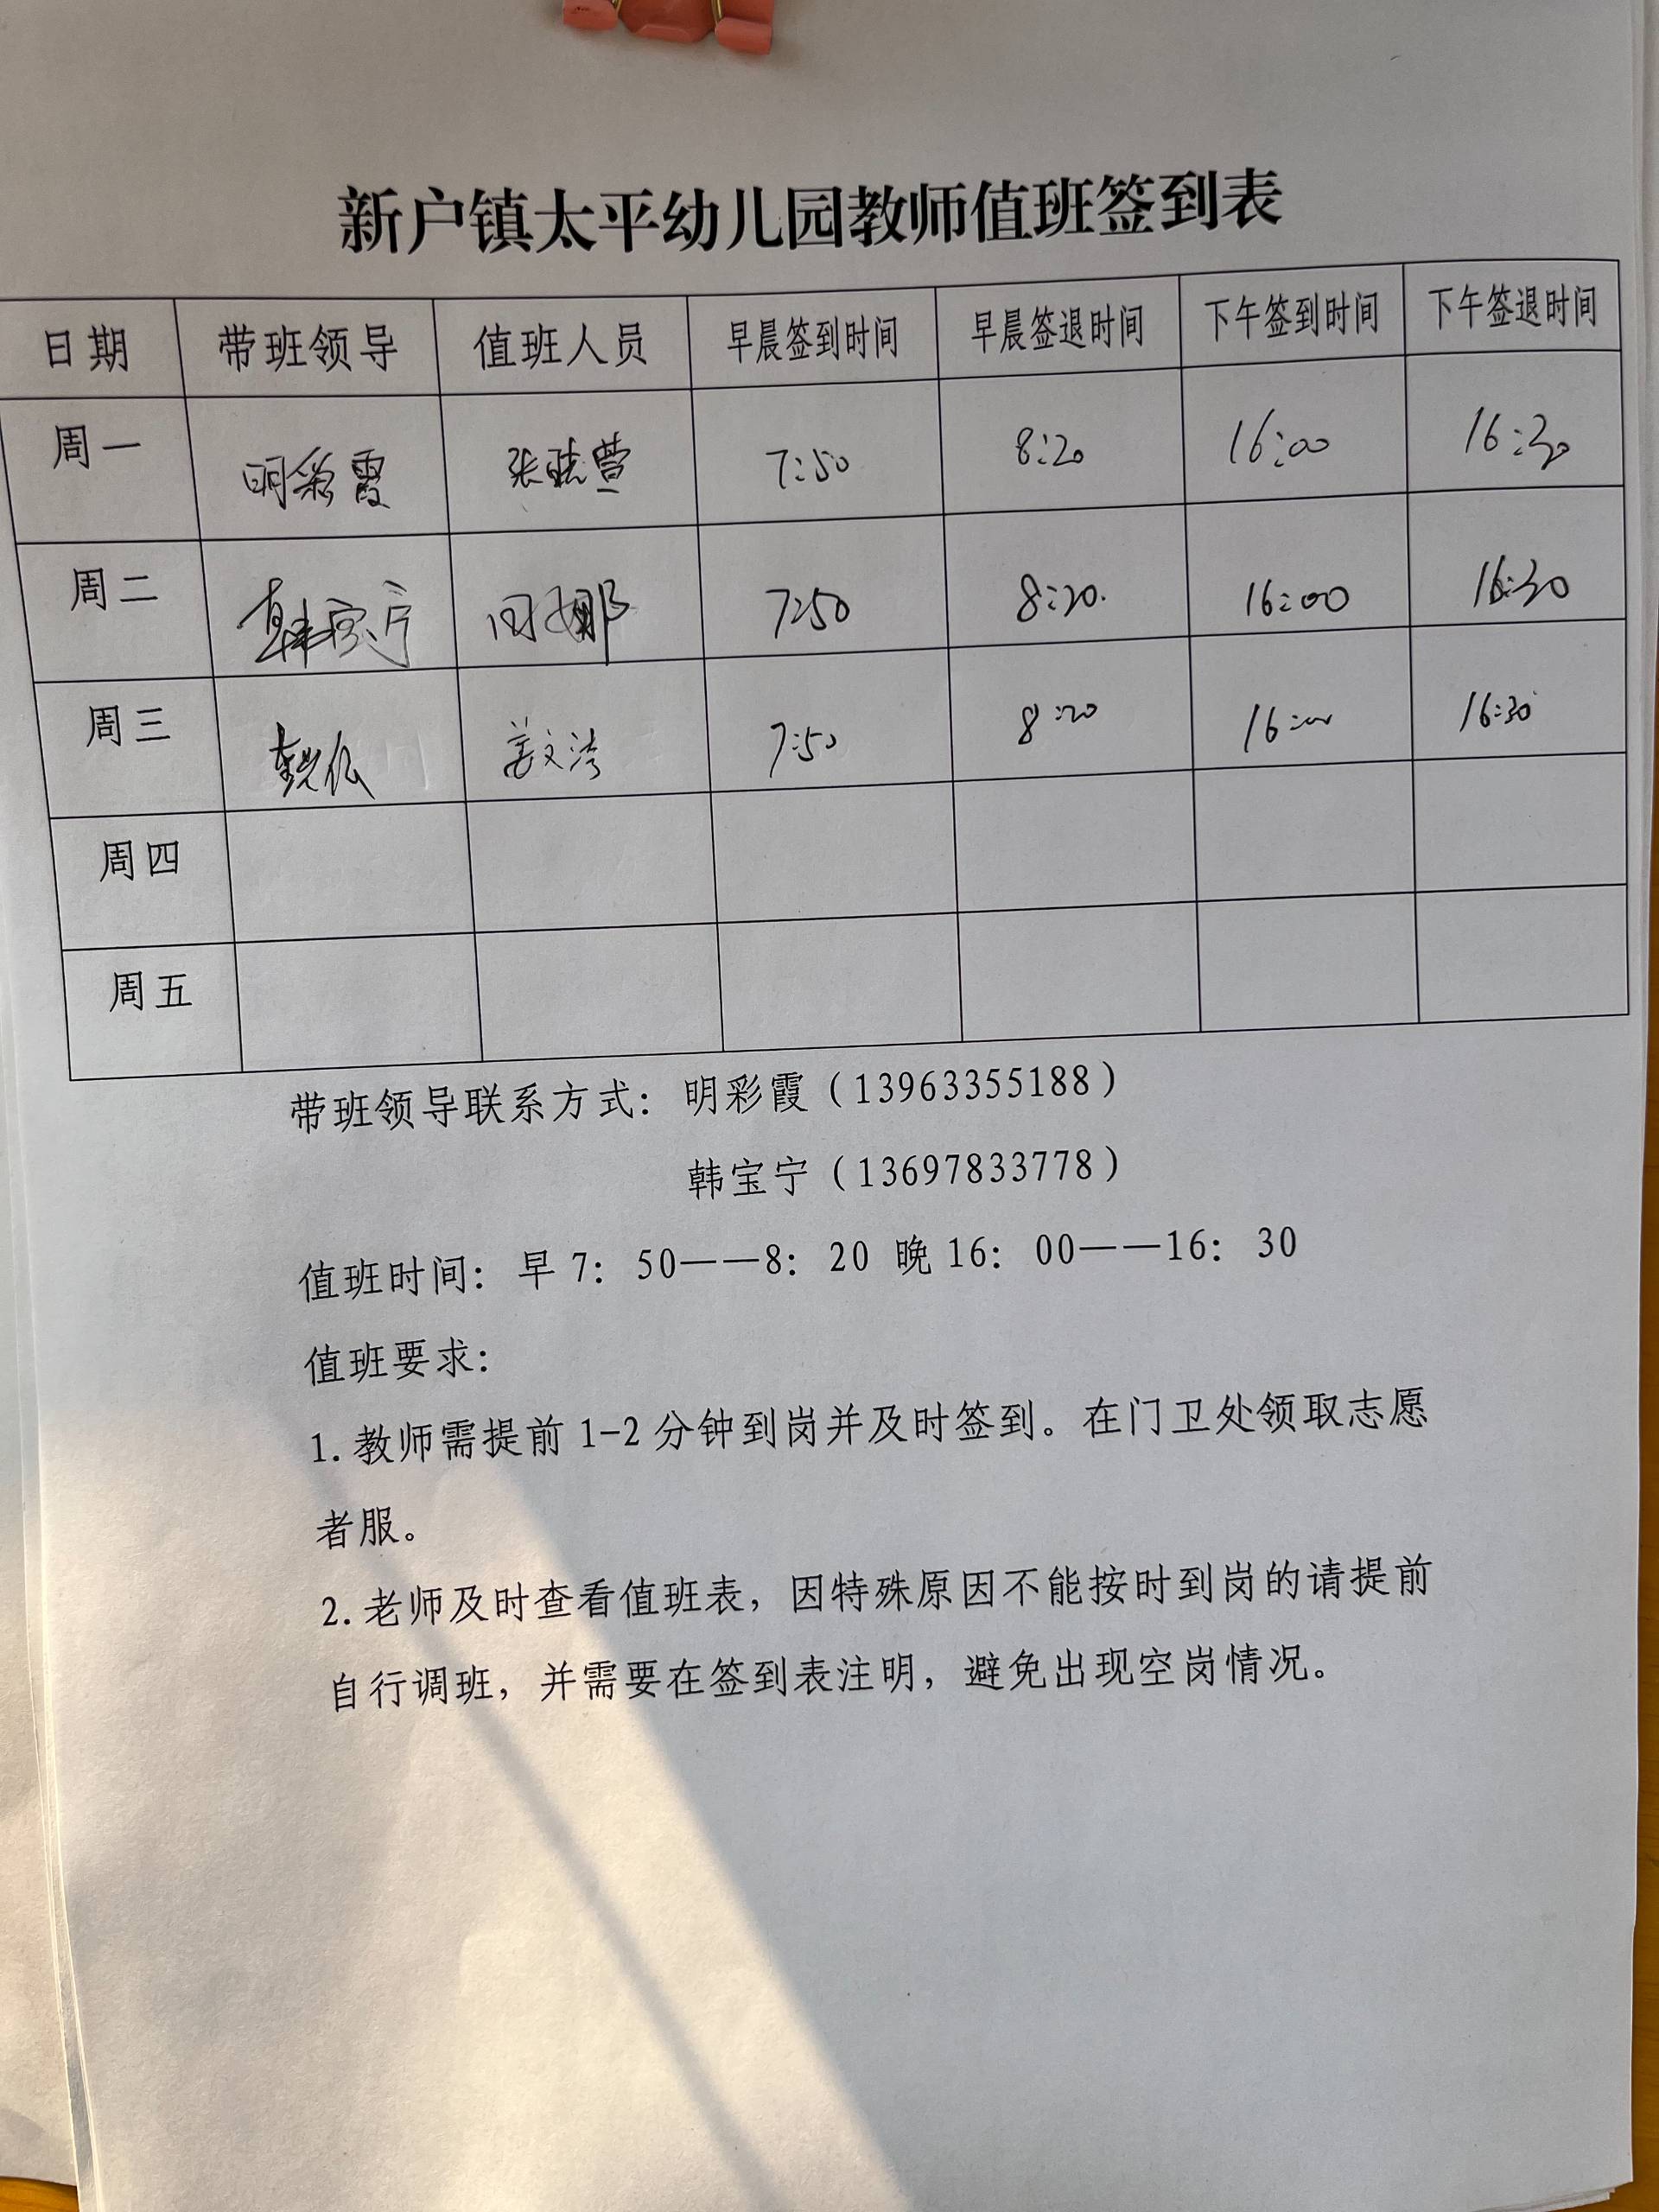 新户镇太平幼儿园教师值班签到表
日期 带班领导 值班人员 早晨签到时间 早晨签退时间 下午签到时间 下午签退时间
周一 明彩霞 张晓萱 7:50 8:20 16:00 16:30
周二 韩宝宁 田娜 7:50 8:20. 16:00 16:30
周三 姜文涛 7:50 8:20 16:00 16:30
周四
周五
带班领导联系方式：明彩霞（13963355188）
韩宝宁（13697833778）
值班时间：早7：50——8：20 晚16：00——16：30
值班要求：
1.教师需提前1-2分钟到岗并及时签到。在门卫处领取志愿
者服。
2.老师及时查看值班表，因特殊原因不能按时到岗的请提前
自行调班，并需要在签到表注明，避免出现空岗情况。